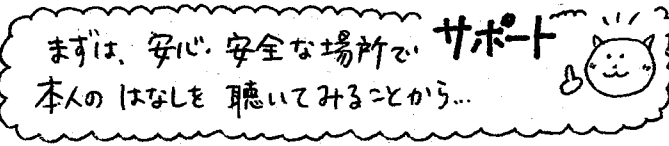 まずは、安心・安全な場所で サポート
本人の はなしを 聴いてみることから...